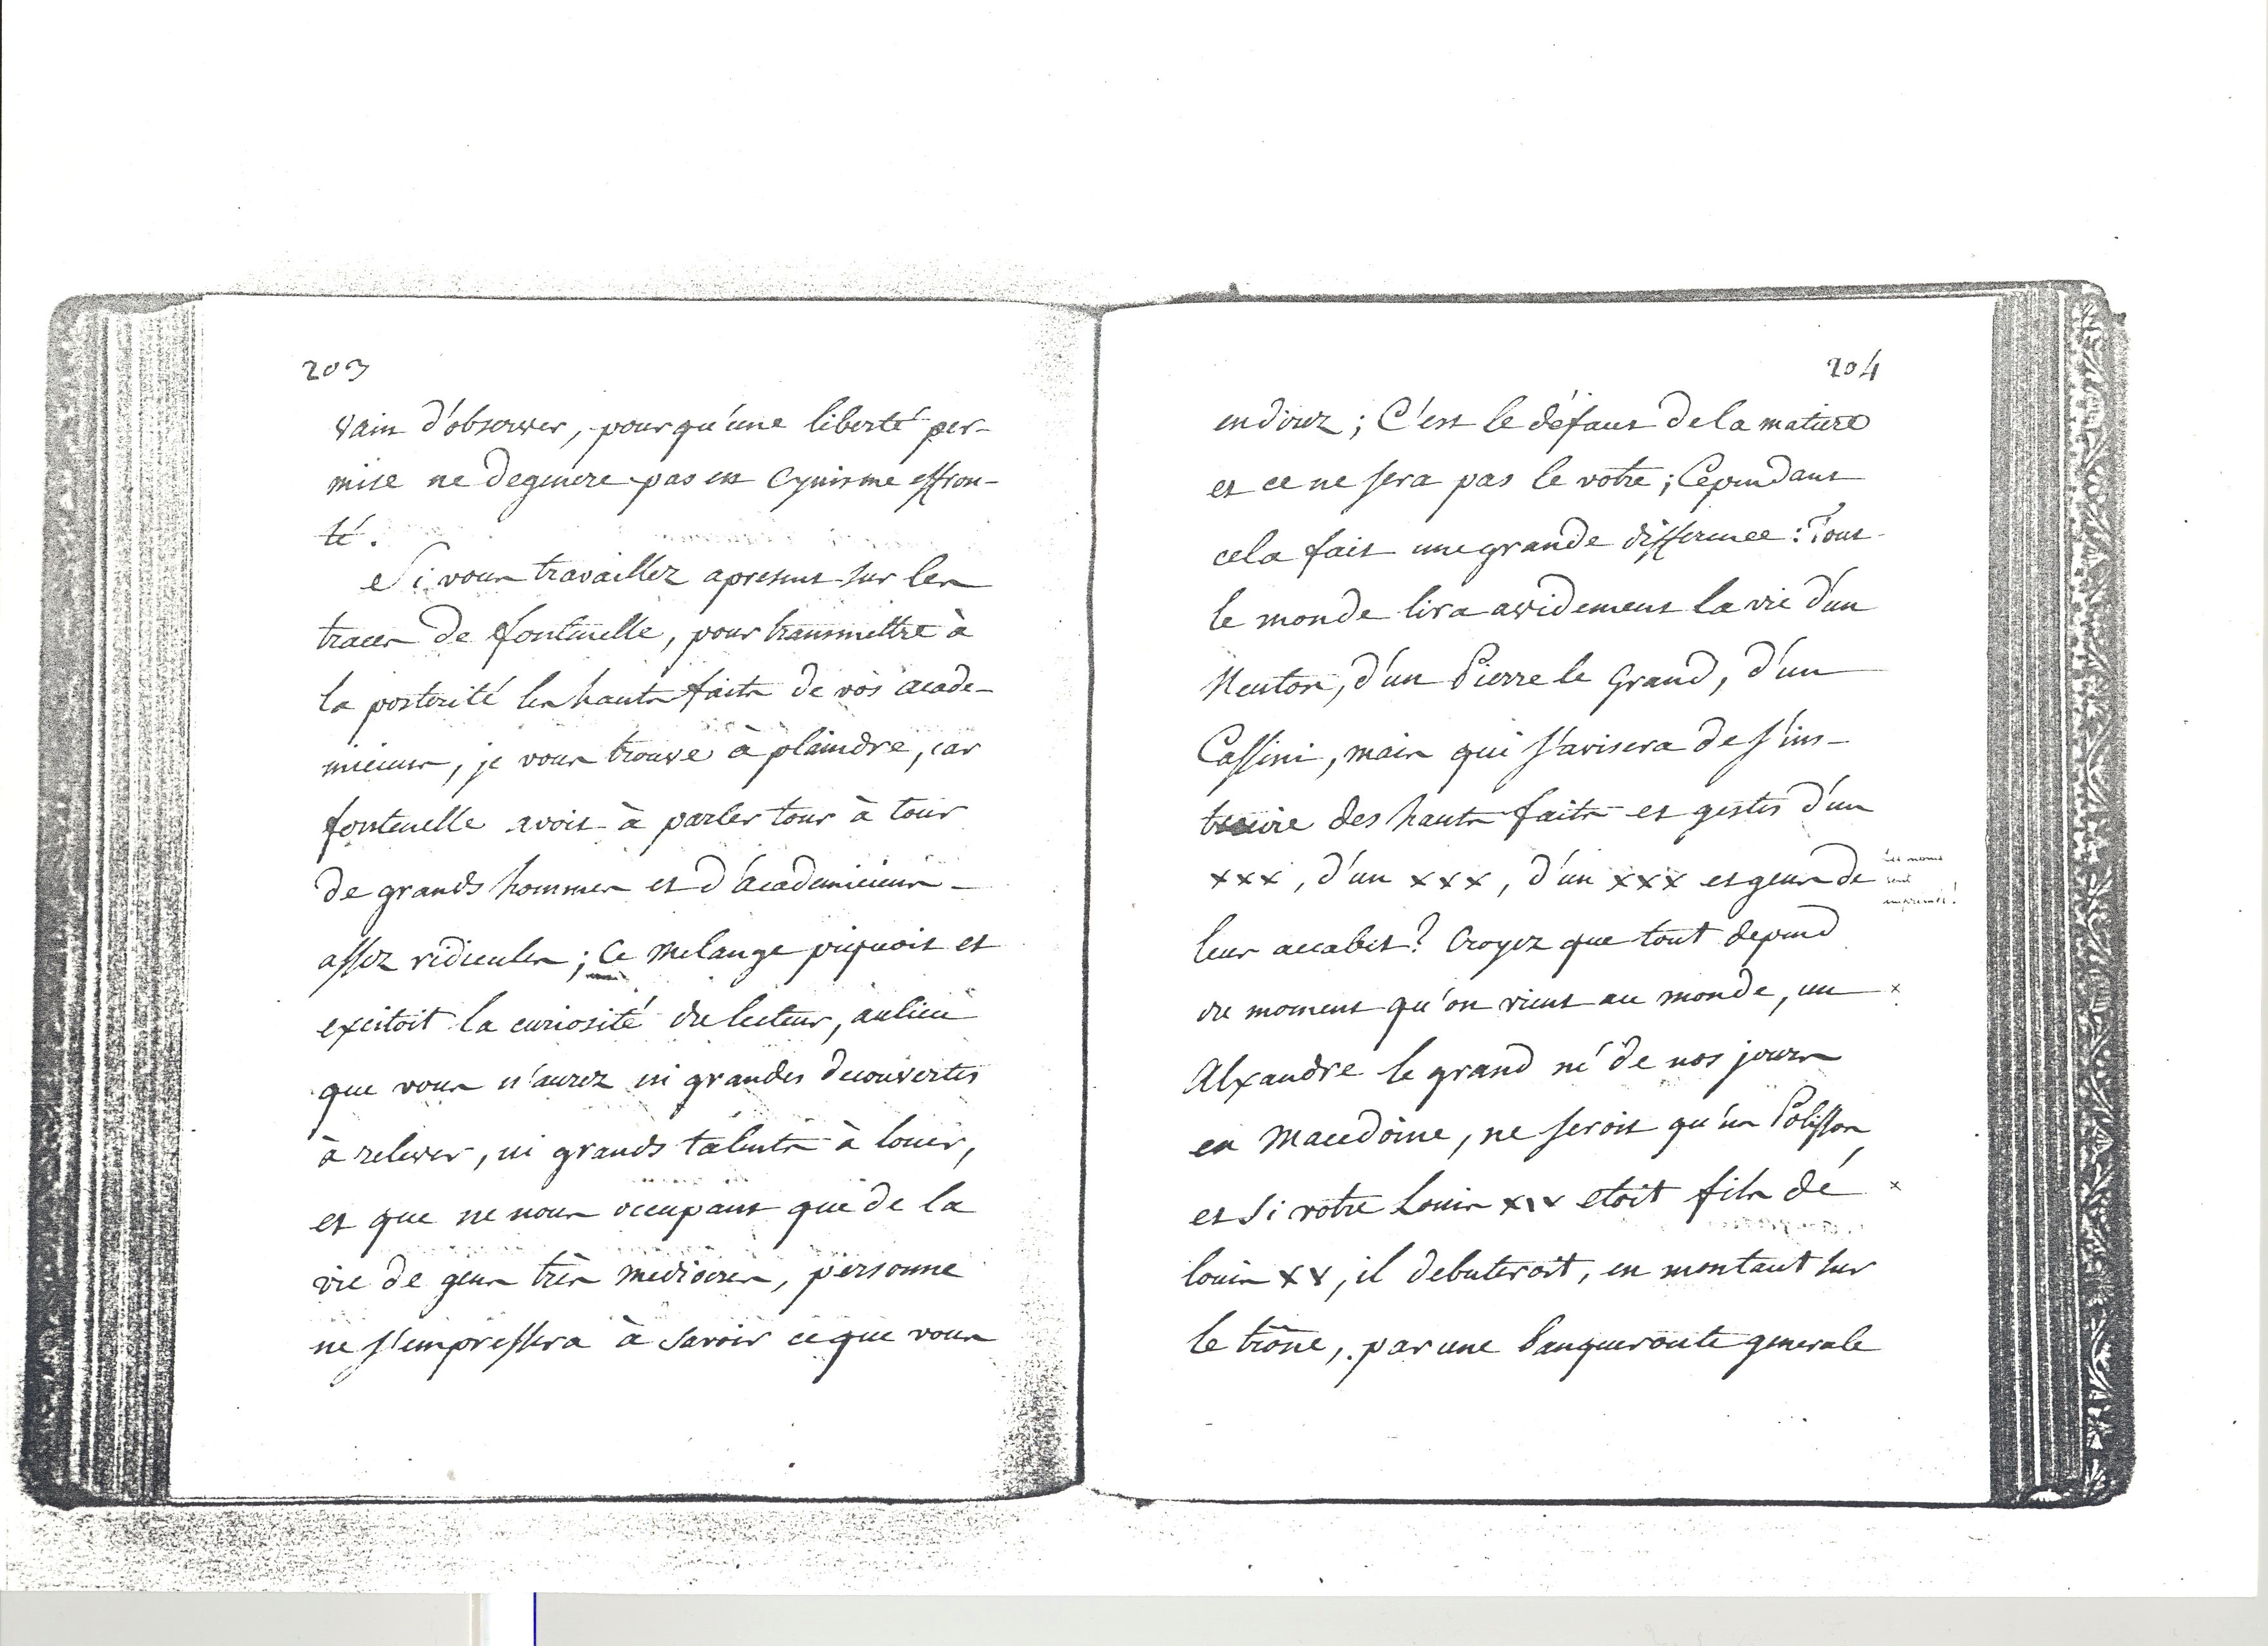 203
vain d'observer, pour qu'une liberté per-
mise ne degenere pas en Cynisme effron-
té.
Si vous travaillez apresent sur les
traces de fontenelle, pour transmettre à
la posterité les hauts faits de vos acade-
miciens, je vous trouve à plaindre, car
fontenelle avoit à parler tour à tour
de grands hommes et d'academiciens
assez ridicules ; Ce melange piquoit et
excitoit la curiosité du lecteur, aulieu
que vous n'aurez ni grandes decouvertes
à relever, ni grands talents à louer,
et que ne nous occupant que de la
vie de gens très mediocres, personne
ne s'empressera à savoir ceque vous
204
en direz ; C'est le défaut de la matiere
et ce ne sera pas le votre ; Cependant
cela fait une grande difference : Tout
le monde lira avidement la vie d'un
Neuton, d'un Pierre le Grand, d'un
Cassini, mais qui s'avisera de s'ins-
truire des hauts faits et gestes d'un
xxx, d'un xxx, d'un xxx et gens de
Les noms
sont
imprimés !
leur accabit ? Croyez que tout depend
du moment qu'on vient au monde, un x
Alxandre le grand né de nos jours
en Macedoine, ne seroit qu'un Polisson,
et si votre Louis XIV etoit fils de x
louis XV, il debuteroit, en montant sur
le trône, par une banqueroute generale